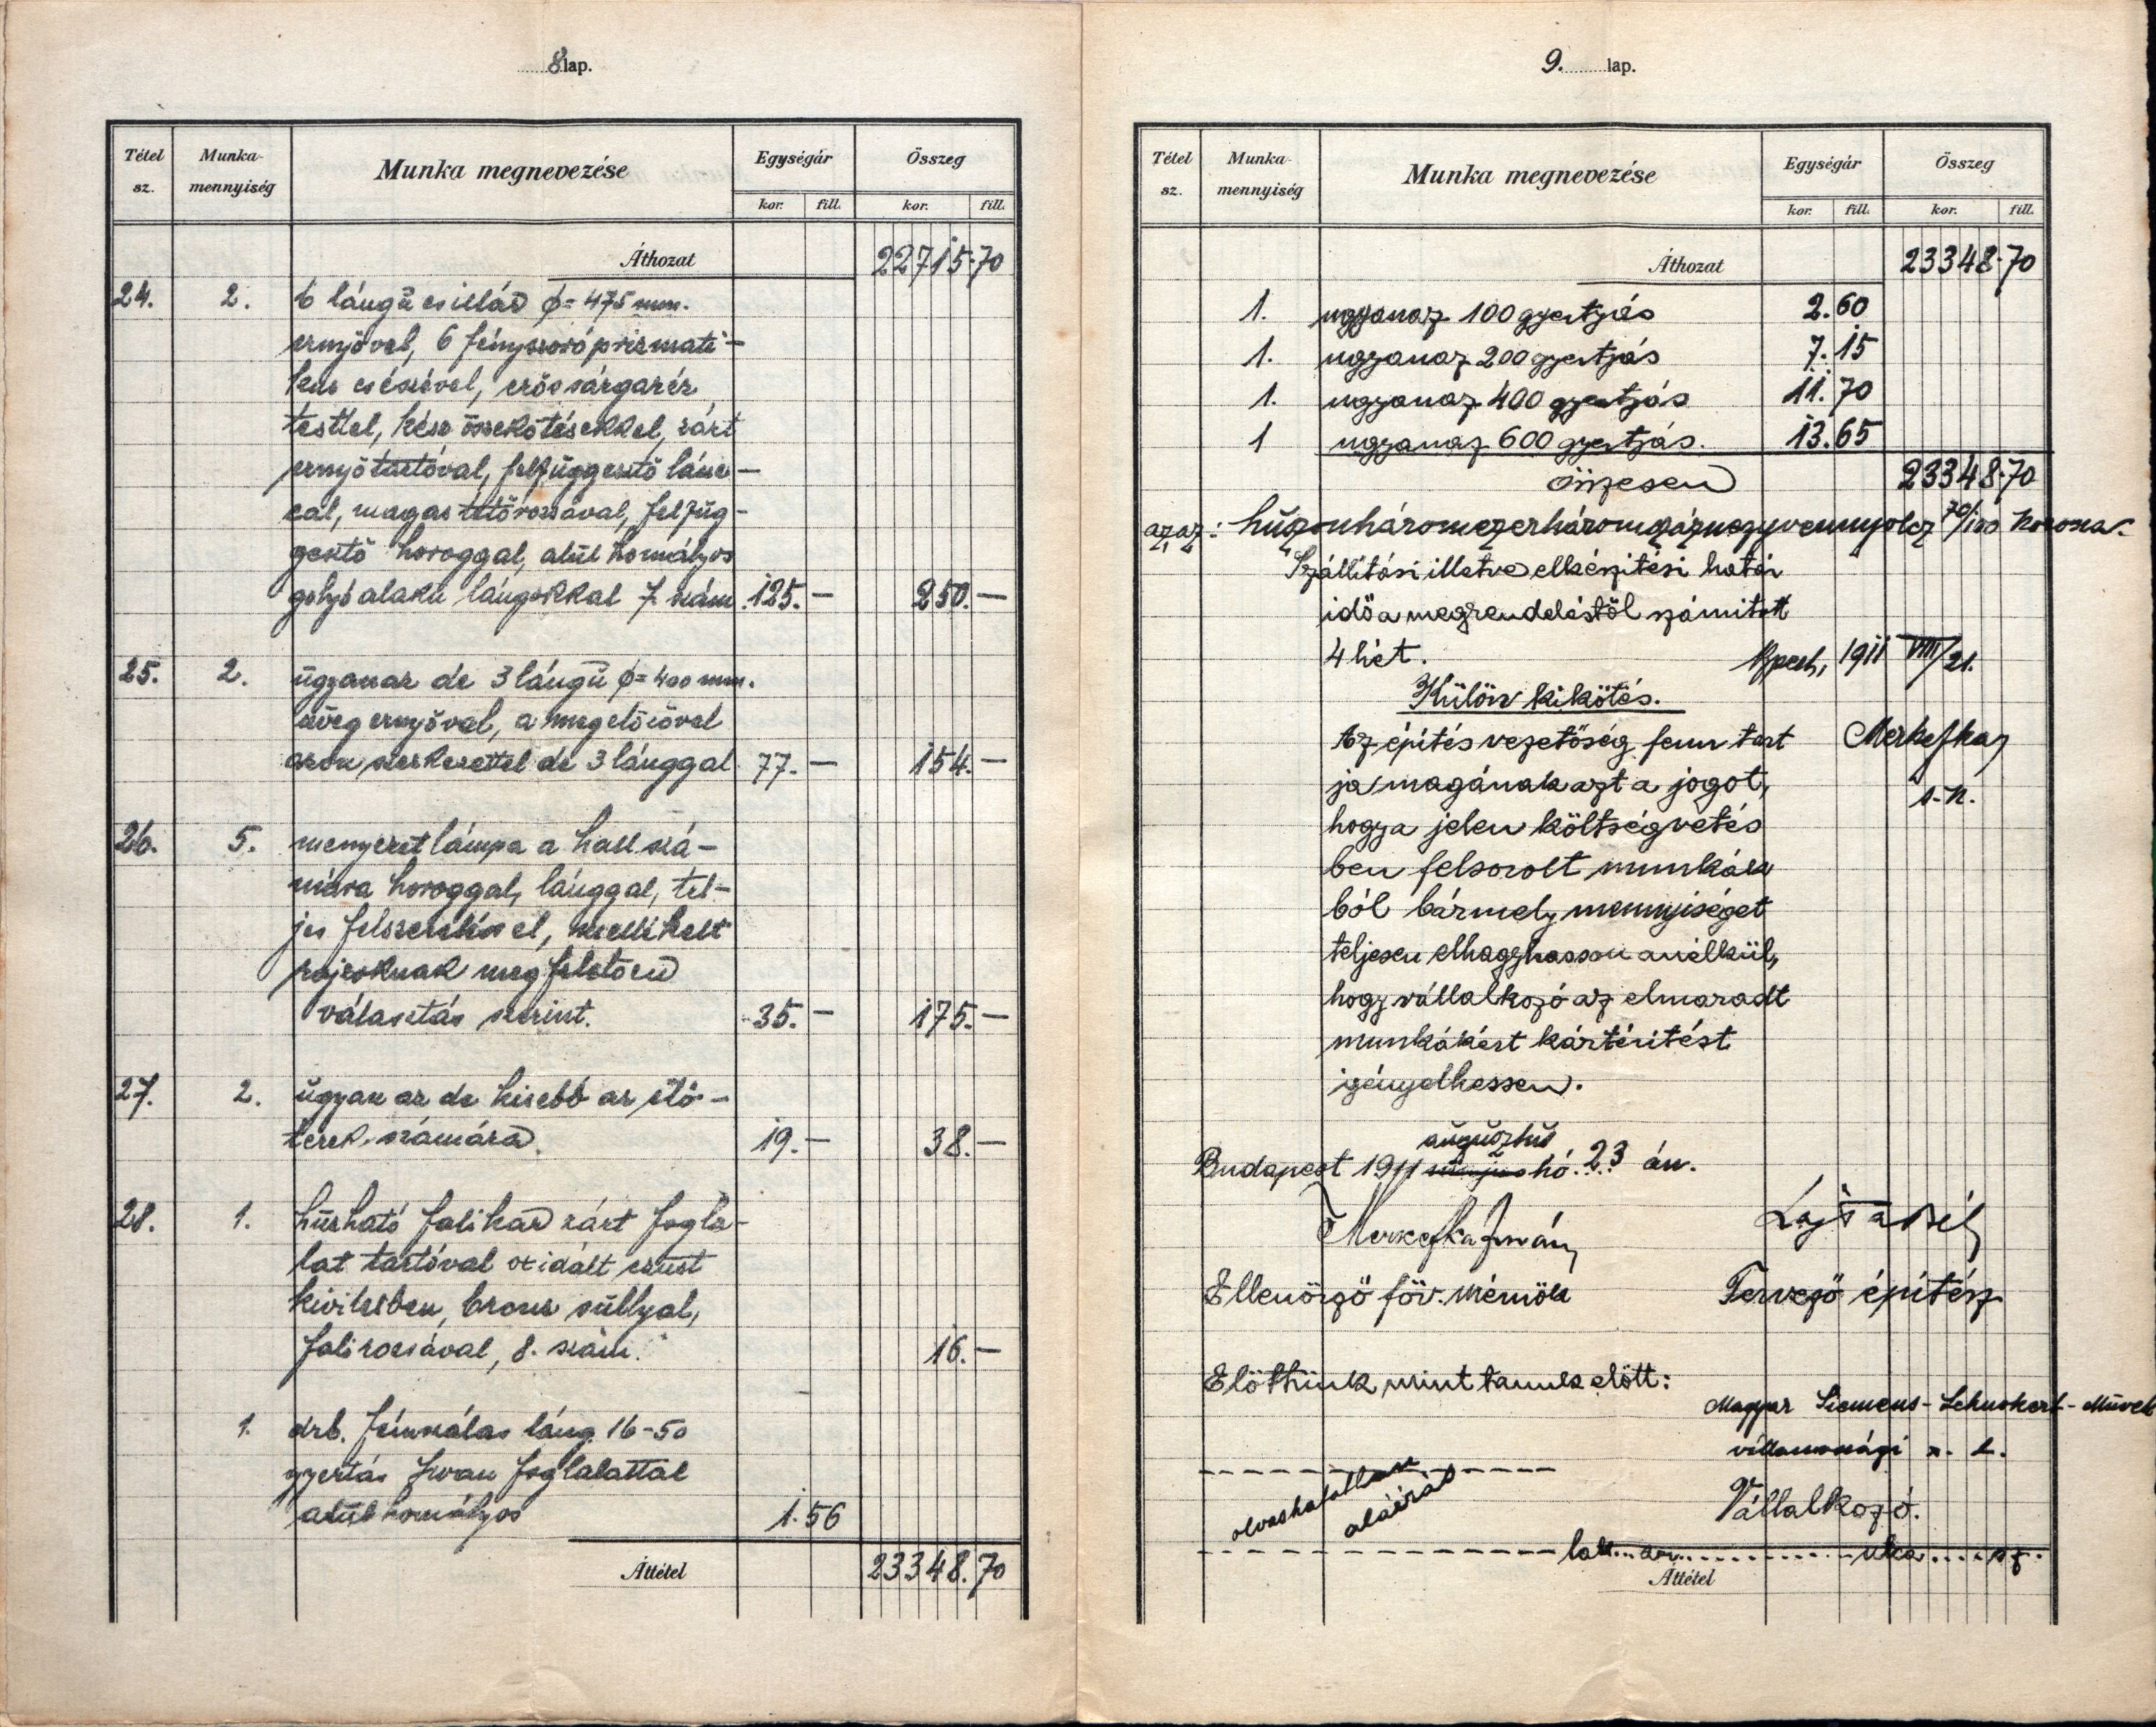 8 lap.
Tétel sz. Munka-mennyiség Munka megnevezése Egységár Összeg
kor. fill. kor. fill.
Áthozat 22715.70
24. 2. 6 lángú csillár ϕ=475 mm.
ernyővel, 6 fényszoró prizmati-
kus csészével, erős sárgaréz
testtel, kész összekötésekkel, zárt
ernyőtartóval, felfüggesztő lánc-
cal, magas tetőrozsával, felfüg-
gesztő horoggal, alul homályos
golyó alaku lángokkal 7. szám. 125.— 250.—
25. 2. ugyanaz de 3 lángú ϕ=400 mm.
üveg ernyővel, a megelőzővel
azon szerkezettel de 3 lánggal 77.— 154.—
26. 5. menyezet lámpa a hall szá-
mára horoggal, lánggal, tel-
jes felszereléssel, mellékelt
rajzoknak megfelelően
választás szerint. 35.— 175.—
27. 2. ugyan az de kisebb az elő-
terek számára. 19.— 38.—
28. 1. húzható falikar zárt fogla-
lat tartóval oxidált ezüst
kivitelben, bronz süllyal,
falirozsával, 8. szám. 16.—
1. drb. fémszálas láng 16-50
gyertás Swan foglalattal
alul homályos 1.56
Áttétel 23348.70
9. lap.
Tétel sz. Munka-mennyiség Munka megnevezése Egységár Összeg
kor. fill. kor. fill.
Áthozat 23348.70
1. ugyanaz 100 gyertyás 2.60
1. ugyanaz 200 gyertyás 7.15
1. ugyanaz 400 gyertyás 11.70
1 ugyanaz 600 gyertyás. 13.65
összesen 23348.70
azaz: huszonháromezerháromszáznegyvennyolcz 70/100 korona.
Szállitási illetve elkészitési határ
idő a megrendeléstől számitott
4 hét. Bpest, 1911 VIII/21.
Külön kikötés.
Az épités vezetőség fenn tart Merkefka
ja magának azt a jogot, s.k.
hogy a jelen költségvetés
ben felsorolt munkák
ból bármely mennyiséget
teljesen elhagyhasson anélkül,
hogy vállalkozó az elmaradt
munkákért kártéritést
igényelhessen.
augusztus
Budapest 1911 május hó. 23 án.
Merkefka Iván Lajta Béla
Ellenőrző főv. mérnök Tervező épitész
Előttünk, mint tanuk előtt:
Magyar Siemens-Schuckert-Művek
villamossági r. t.
olvashatatlan
aláirás
Vállalkozó.
lak... utca.... sz.
Áttétel